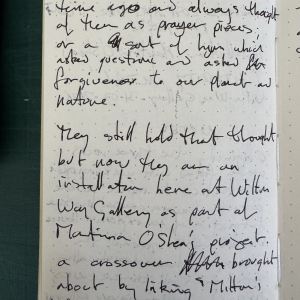 time ago and always thought
of them as prayer pieces,
or a sort of hymn which
asked questions and asked for
forgiveness to our planet and
nature.
They still hold that thought
but now they are an
installation here at Wilton
Way Gallery as part of
Martina O'Shea's project.
a crossover brought
about by linking "Milton's